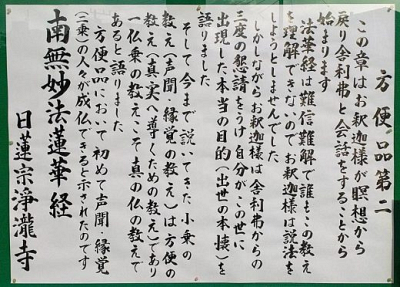 方便品第二
この章はお釈迦様が瞑想から
戻り舎利弗と会話をすることから
始まります
法華経は難信難解で誰もこの教え
を理解できないのでお釈迦様は説法を
しようとしませんでした。
しかしながらお釈迦様は舎利弗からの
三度の懇請をうけ自分がこの世に
出現した本当の目的(出世の本懐)を
語りました
そして今まで説いてきた小乗の
教え(声聞 縁覚の教え)は方便の
教え(真実へ導くための教え)であり
一仏乗の教えこそ真の仏の教えで
あると語りました
方便品において初めて声聞 縁覚
(二乗)の人々が成仏できると示されたのです
南無妙法蓮華経
日蓮宗浄瀧寺